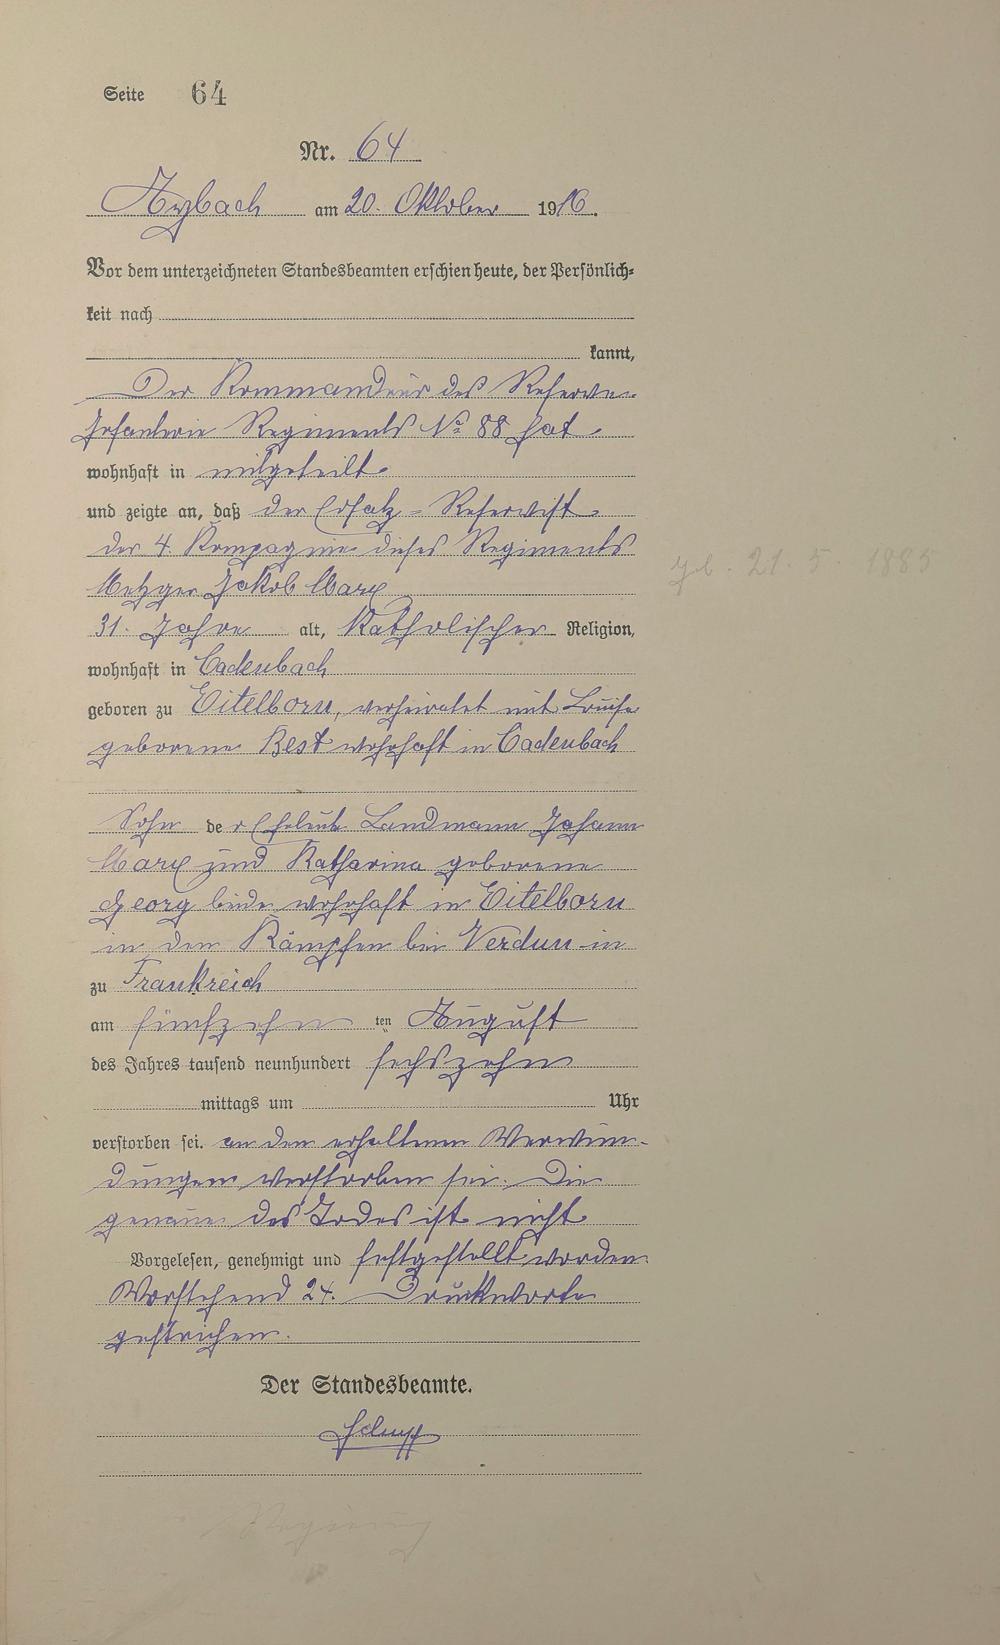 Seite 64
Nr. 64
Arzbach am 20. Oktober 1916.
Vor dem unterzeichneten Standesbeamten erschien heute, der Persönlich-
keit nach
kannt,
Der Kommandeur des Reserve
Infanterie Regiments No 88 hat
wohnhaft in mitgeteilt
und zeigte an, daß der Ersatz-Reservist
der 4. Kompagnie dieses Regiments
gb. 21. 5. 1885
Metzger Jakob Marx
31. Jahre alt, Katholischer Religion,
wohnhaft in Cadenbach
geboren zu Eitelborn, verheiratet mit Louise
geborene Best wohnhaft in Cadenbach
Sohn der Eheleute Landmann Johann
Marx und Katharina geborene
Georg beide wohnhaft in Eitelborn
in den Kämpfen bei Verdun in
zu Frankreich
am fünfzehn ten August
des Jahres tausend neunhundert sechszehn
mittags um Uhr
verstorben sei. an den erhaltenen Verwun-
dungen verstorben sei. Die
genaue des Todes ist nicht
Vorgelesen, genehmigt und festgestellt worden.
Vorstehend 24. Druckworte
gestrichen.
Der Standesbeamte.